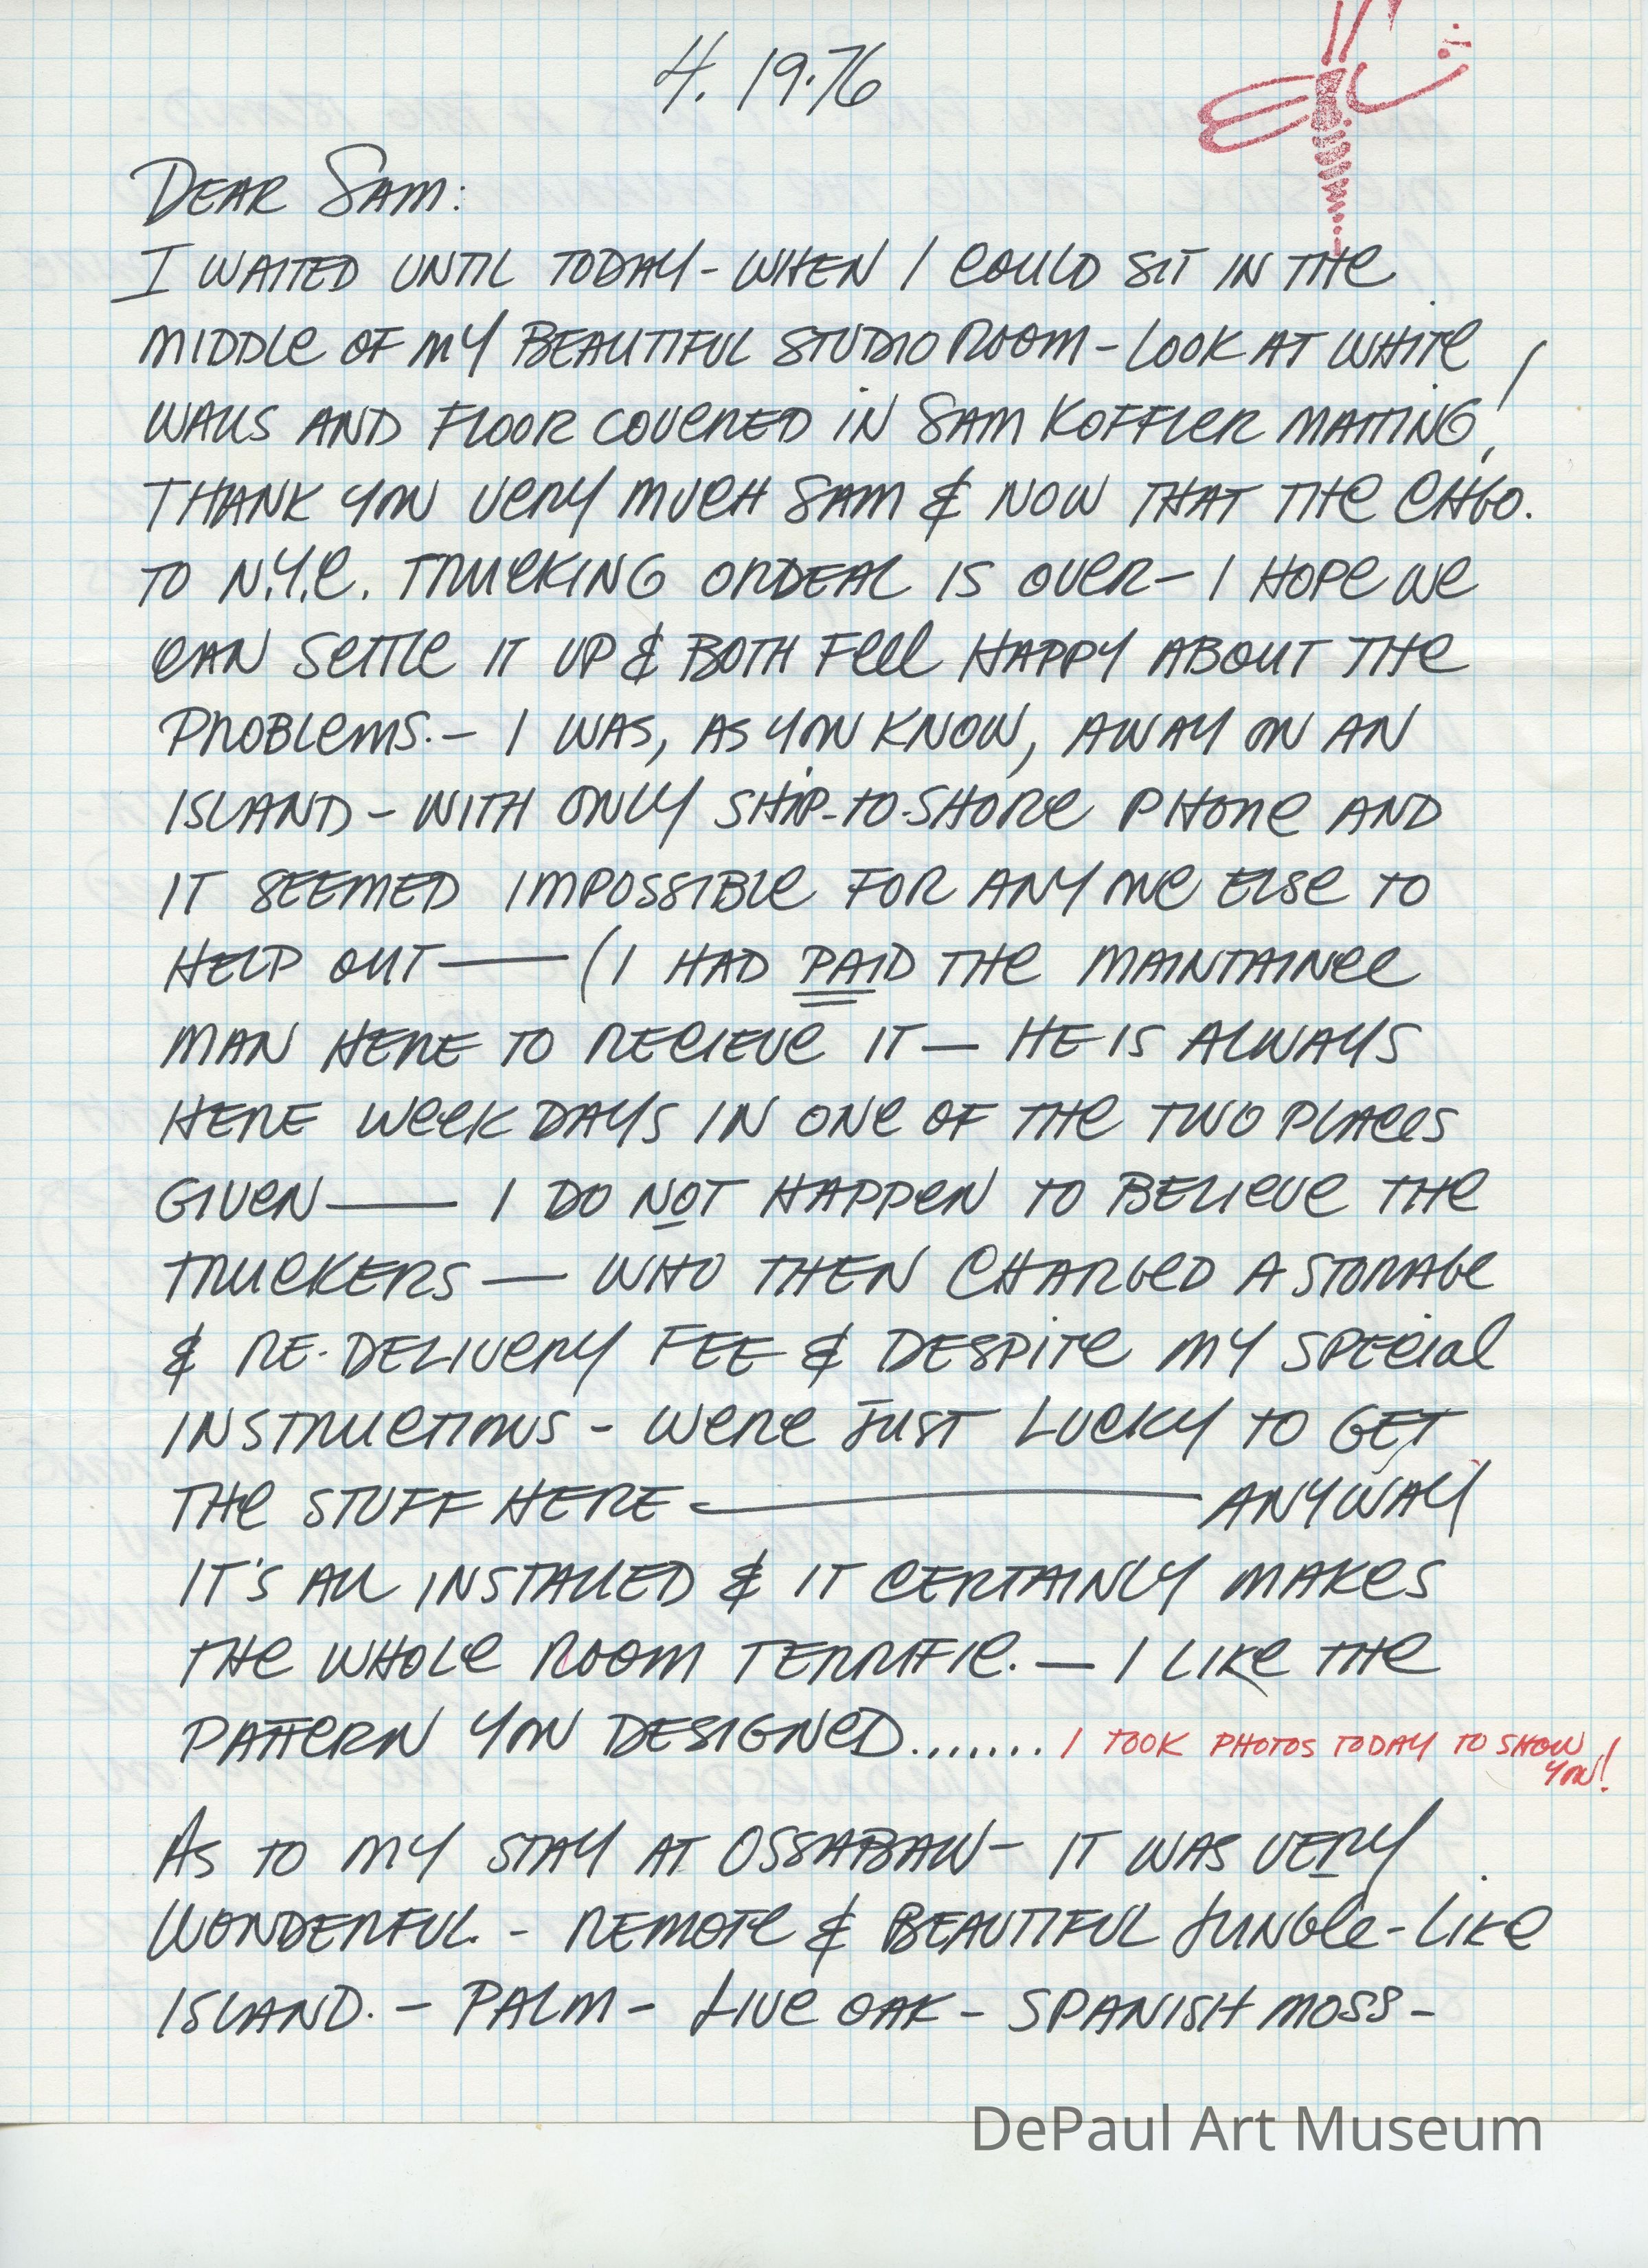 4.19.76
DEAR SAM:
I WAITED UNTIL TODAY - WHEN I COULD SIT IN THE
MIDDLE OF MY BEAUTIFUL STUDIO ROOM - LOOK AT WHITE
WALLS AND FLOOR COVERED IN SAM KOFFLER MATTING!
THANK YOU VERY MUCH SAM & NOW THAT THE CHGO.
TO N.Y.C. TRUCKING ORDEAL IS OVER - I HOPE WE
CAN SETTLE IT UP & BOTH FEEL HAPPY ABOUT THE
PROBLEMS. - I WAS, AS YOU KNOW, AWAY ON AN
ISLAND - WITH ONLY SHIP-TO-SHORE PHONE AND
IT SEEMED IMPOSSIBLE FOR ANY ONE ELSE TO
HELP OUT — (I HAD PAID THE MAINTAINEE
MAN HERE TO RECIEVE IT — HE IS ALWAYS
HERE WEEK DAYS IN ONE OF THE TWO PLACES
GIVEN — I DO NOT HAPPEN TO BELIEVE THE
TRUCKERS — WHO THEN CHARGED A STORAGE
& RE-DELIVERY FEE & DESPITE MY SPECIAL
INSTRUCTIONS - WERE JUST LUCKY TO GET
THE STUFF HERE — ANYWAY
IT'S ALL INSTALLED & IT CERTAINLY MAKES
THE WHOLE ROOM TERRIFIC. — I LIKE THE
PATTERN YOU DESIGNED....... I TOOK PHOTOS TODAY TO SHOW
YOU!
AS TO MY STAY AT OSSABAW - IT WAS VERY
WONDERFUL. - REMOTE & BEAUTIFUL JUNGLE-LIKE
ISLAND. - PALM - LIVE OAK - SPANISH MOSS -
DePaul Art Museum